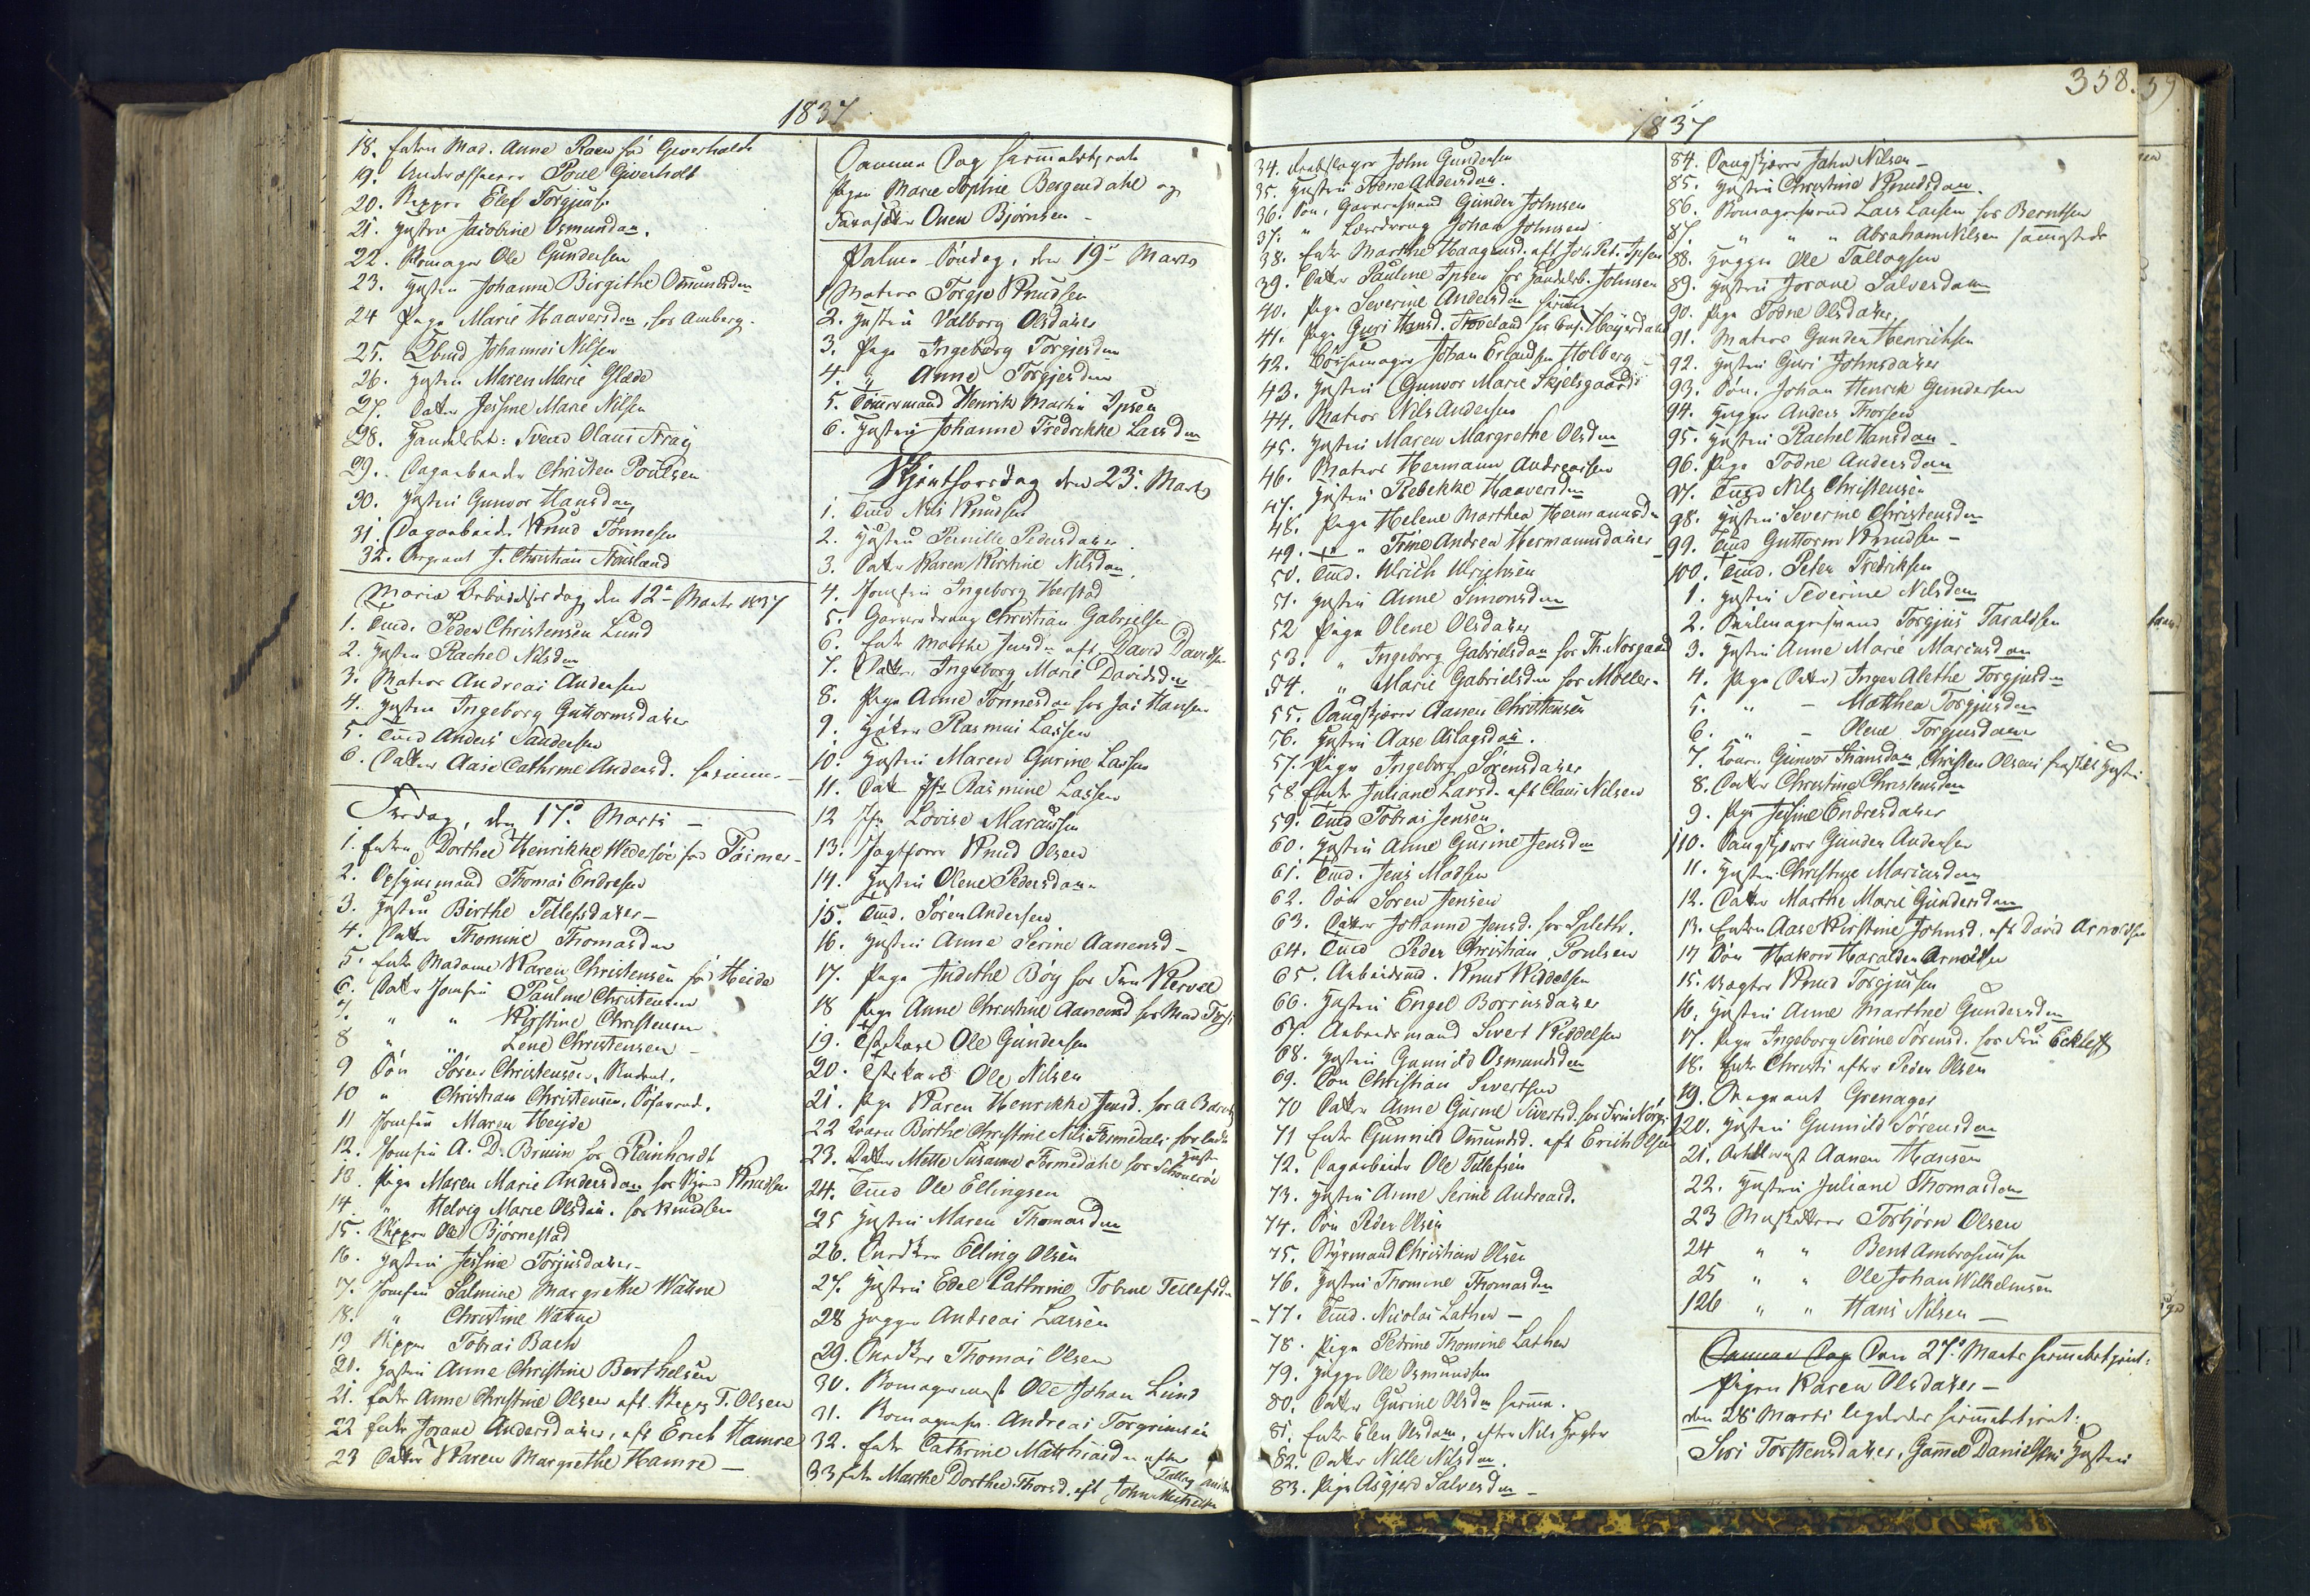 1837
18. Enken Mad. Anne Raen fød Giverholdt
19. Underofficeer Poul Giverholt
20. Skipper Elef Torgjus.
21. Hustru Jacobine Osmundsdatter.
22. Skomager Ole Gundersen
23. Hustru Johanne Birgithe Osmundsdtr
24 Pige Marie Haaversdtr, hos Amberg.
25. Tbmd Johannes Nilsen
26. Hustru Maren Marie Glæde
27. Datter Jessine Marie Nilsen
28. Handelsbt: Svend Olaus Stray
29. Dagarbeider Christen Poulsen
30. Hustru Gunvor Hansdtr
31. Dagarbeider Knud Tønnesen
32. Sergeant J. Christian
Mariæ Bebudelses dag den 12te Marts 1837
1. Tmd. Peder Christensen Lund
2. Hustru Rachel Nilsdtr
3. Matros Andreas Andersen
4. Hustru Ingeborg Guttormsdatter
5. Tmd Anders Sandersen
6. Datter Aase Cathrine Andersd. hjemme
Fredag, den 17de Marts –
1. Enken Dorthee Henrikke Wedersøe fød
2. Opsynsmand Thomas Endresen
3. Hustru Birthe Tellefsdatter –
4. Datter Thomine Thomasdtr
5. Enke Madame Karen Christensen fød Heide
6. Datter Jomfru Pauline Christensen
7. " " Kirstine Christensen
8 " " Lene Christensen –
9 Søn Søren Christensen, Student.
10 " Christian Christensen,
11 Jomfru Maren Heyde
12. Jomfru A. D. Bruun hos Reinhardt
13. Pige Maren Marie Andersdtr hos Knudsen
14. " Helvig Marie Olsdtr. hos Knudsen
15. Skipper Ole Bjørnestad
16. Hustru Jessine Torjusdatter
17. Jomfru Salmine Margrethe Wathne
18. " Christine Wathne
19 Skipper Tobias Bach
20. Hustru Anne Christine Berthelsen
21. Enke Anne Christine Olsen eft. Skipp T. Olsen
22 Enke Jorane Andersdatter, eft Erich Hamre
23 Datter Karen Margrethe Hamre –
Samme Dag hjemmeberettet
Pigen Marie Sophie Bergendahl og
Owen Bjørnsen –
Palme Søndag, den 19de Marts
1 Matros Torgje Knudsen
2. Hustru Valborg Olsdatter
3. Pige Ingeborg Torgjesdtr
4. " Anne Torgjesdtr
5. Tømmermand Henrik Martin Ipsen
6. Hustru Johanne Fredrikke Larsdtr
Skjærthorsdag den 23de Marts
1. Tmd Nils Knudsen
2. Hustru Pernille Pedersdatter
3. Datter Karen Kirstine Nilsdtr.
4. Jomfru Ingeborg Herstad
5. Garverdreng Christian Gabrielsen
6. Enke Marthe Jensdtr eft. David Davidsen
7. Datter Ingeborg Marie Davidsdtr
8. Pige Anne Tønnesdtr hos Jac Hansen
9. Høker Rasmus Lassen
10. Hustru Maren Gurine Lassen
11. Datter Jfr Rasmine Lassen
12 Jfr Lovise Marcussen
13. Jagtfører Knud Olsen
14. Hustru Olene Pedersdatter
15. Tmd. Søren Andersen
16. Hustru Anne Serine Aanensd –
17. Pige Judithe Bøy hos Fru Kervel
18 Pige Anne Christine Aanensd hos Mad
19. Ole Gundersen
20. Ole Nilsen
21. Pige Karen Henrikke Jensd. hos
22 Birthe Christine Nils Homedals
23. Datter Mette Susanne Homedahl hos
24. Tmd Ole Ellingsen
25 Hustru Maren Thomasdtr
26. Snedker Elling Olsen
27. Hustru Edel Cathrine Tobine Tellefsdtr
28 Hugger Andreas Larsen
29. Snedker Thomas Olsen
30. Skomagermest Ole Johan Lund
31. Skomagersv. Andreas Torgrimsen
32. Enke Cathrine Matthiasdtr efter
33 Enke Marthe Dorthea Thorsd. eft John Michelsen
358. 59
1837
34. Rebslager John Gundersen
35. Hustru Todne Andersdtr.
36. Søn, Garversvend Gunder Johnsen
37. " Læredreng Johan Johnsen
38. Enke Marthe Haagensd. eft Joh. Pet. Ipsen
39. Datter Pauline Ipsen hos Handelsb. Johnsen
40. Pige Severine Andersdtr hjemme
41. Pige Guri Hansd. Stoveland hos
42. Bøssemager Johan Erlandsen Holberg
43. Hustru Gunvor Marie Skjelsgaard
44. Matros Nils Andersen
45. Hustru Maren Margrethe Olsdtr
46. Matros Hermann Andreassen
47. Hustru Rebekke Haaversdtr
48. Pige Helene Marthea Hermannsdtr
49. " Trine Andrea Hermannsdatter
50. Tmd. Ulrich Ulrichsen
51. Hustru Anne Simonsdtr
52 Pige Olene Olsdatter
53. " Ingeborg Gabrielsdtr hos Th. Norgaard
54. " Marie Gabrielsdtr hos Møller
55. Saugskjærer Aanen Christensen
56. Hustru Aase Aslagsdtr.
57. Pige Ingeborg Sørensdatter
58 Enke Juliane Larsd. eft Claus Nilsen
59. Tmd Tobias Jensen
60. Hustru Anne Gurine Jensdtr
61. Tmd. Jens Madsen
62. Søn Søren Jensen
63. Datter Johanne Jensd. hos Spleth.
64. Tmd Peder Christian Poulsen
65. Arbeidsmd. Knud Kiddelsen
66. Hustru Engel Borrusdatter
67. Arbeidsmand Sivert Kiddelsen
68. Hustru Gunnild Osmundsdtr
69. Søn Christian Sivertsen
70 Datter Anne Gurine Sivertsd. hos Fru
71 Enke Gunnild Omundsd. eft Erich Olsen
72. Dagarbeider Ole Tellefsen
73. Hustru Anne Serine Andreasd.
74. Søn Peder Olsen
75. Styrmand Christian Olsen
76. Hustru Thomine Thomasdtr
77. Tmd. Nicolai Lathen –
78. Pige Petrine Thomine Lathen
79. Hugger Ole Osmundsen
80. Datter Gurine Olsdtr hjemme.
81. Enke Elen Olsdtr, efter Nils
82. Datter Nille Nilsdtr.
83. Pige Asgjerd Salvesdtr –
84. Saugskjærer Jahn Nilsen –
85. Hustru Christine Knudsdtr.
86. Skomagersvend Lars Larsen hos Berntsen
87. " " " Abraham Nilsen sammesteds
88. Hugger Ole Tallagsen
89. Hustru Jorane Salvesdtr
90. Pige Todne Olsdatter,
91. Matros Gunder Henrichsen
92. Hustru Guri Johnsdatter
93. Søn, Johan Henrik Gundersen
94. Hugger Anders Thorsen
95. Hustru Rachel Hansdtr –
96. Pige Todne Andersdtr
97. Tmd Nils Christensen
98. Hustru Severine Christensdtr
99. Tmd Guttorm Knudsen –
100. Tmd. Peter Fredriksen
1. Hustru Severine Nilsdtr
2. Seilmagersvend Torgjus Taraldsen
3. Hustru Anne Marie Mariusdtr
4. Pige (Datter) Inger Alethe Torgjusdtr
5. " – Matthea Torgjusdtr
6. " – Olene Torgjusdatter
7. Konen Gunvor Hansdtr, Christen Olsens fraskilt Hustru
8. Datter Christine Christensdtr
9. Pige Jessine Endresdatter
110. Saugskjærer Gunder Andersen
11. Hustru Christine Mariusdtr
12. Datter Marthe Marie Gundersdtr
13. Enken Aase Kirstine Johnsd. eft David Arnoldsen
14 Søn Hakon Haralden Arnoldsen
15. Vægter Knud Torgjussen
16. Hustru Anne Marthea Gundersdtr
17. Pige Ingeborg Serine Sørensd. hos Fru Eckleff
18. Enke Christi efter Peder Olsen
19. Sergeant Grenager
120. Hustru Gunnild Sørensdtr
21. Aanen Hansen
22. Hustru Juliane Thomasdtr
23 Musketeer Torbjørn Olsen
24 " " Bent Ambrosiussen
25 " " Ole Johan Wilhelmsen
126 " " Hans Nilsen –
Samme Dag Den 27de Marts hjemmeberettet:
Pigen Karen Olsdatter –
den 28 Marts ligeledes hjemmeberettet:
Siri Torstensdatter, Gammel Danielsens Hustru